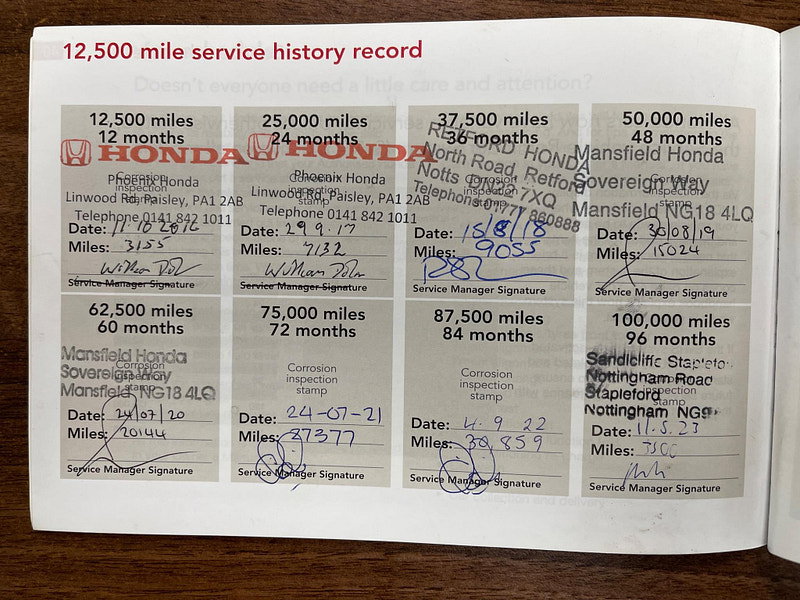 12,500 mile service history record
Doesn't everyone need a little care and attention?
12,500 miles
12 months
HONDA
Corrosion
inspection
stamp
Phoenix Honda
Linwood Rd, Paisley, PA1 2AB
Telephone 0141 842 1011
Date: 11.10 2016
Miles: 3155
Service Manager Signature
25,000 miles
24 months
HONDA
Corrosion
inspection
stamp
Phoenix Honda
Linwood Rd, Paisley, PA1 2AB
Telephone 0141 842 1011
Date: 29 9.17
Miles: 7132
Service Manager Signature
37,500 miles
36 months
RETFORD HONDA
North Road, Retford
Notts DN22 7XQ
Telephone: 01777 860888
Date: 15/8/18
Miles: 9055
Service Manager Signature
50,000 miles
48 months
Mansfield Honda
Corrosion
inspection
stamp
Sovereign Way
Mansfield NG18 4LQ
Date: 30/08/19
Miles: 15024
Service Manager Signature
62,500 miles
60 months
Mansfield Honda
Corrosion
inspection
stamp
Sovereign Way
Mansfield, NG18 4LQ
Date: 24/07/20
Miles: 20144
Service Manager Signature
75,000 miles
72 months
Corrosion
inspection
stamp
Date: 24-07-21
Miles: 27377
Service Manager Signature
87,500 miles
84 months
Corrosion
inspection
stamp
Date: 4.9 22
Miles: 30,859
Service Manager Signature
100,000 miles
96 months
Sandicliffe Stapleford
Nottingham Road
Stapleford
Nottingham NG9
Date: 11.5.23
Miles:
Service Manager Signature